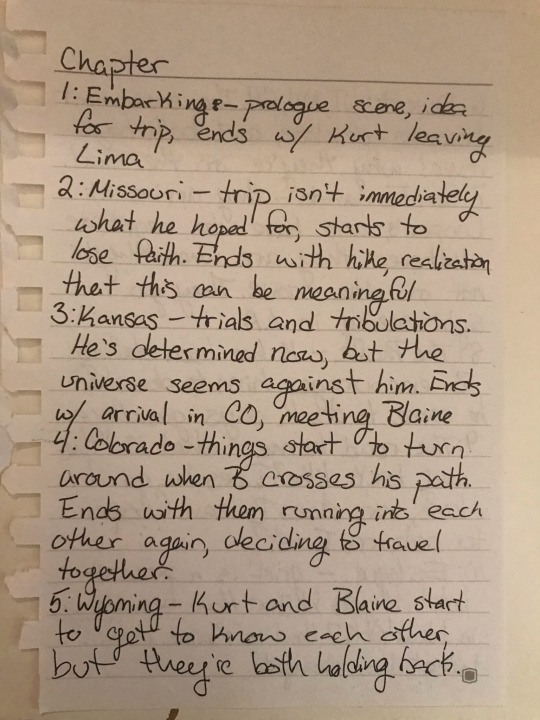 Chapter
1: Embarking - prologue scene, idea
for trip, ends w/ Kurt leaving
Lima
2: Missouri - trip isn't immediately
what he hoped for, starts to
lose faith. Ends with hike, realization
that this can be meaningful
3: Kansas - trials and tribulations.
He's determined now, but the
universe seems against him. Ends
w/ arrival in CO, meeting Blaine
4: Colorado - things start to turn
around when B crosses his path.
Ends with them running into each
other again, deciding to travel
together.
5: Wyoming - Kurt and Blaine start
to get to know each other
but they're both holding back.